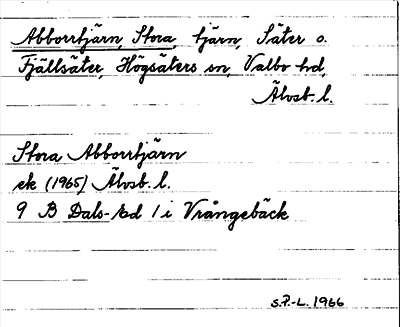 Abborrtjärn, Stora, tjärn, Säter o.
Fjällsäter, Högsäters sn, Valbo hd,
Älvsb. l.
Stora Abborrtjärn
ek (1965) Älvsb. l.
9 B Dals-Ed 1 i Vrångebäck
S.P.-L. 1966